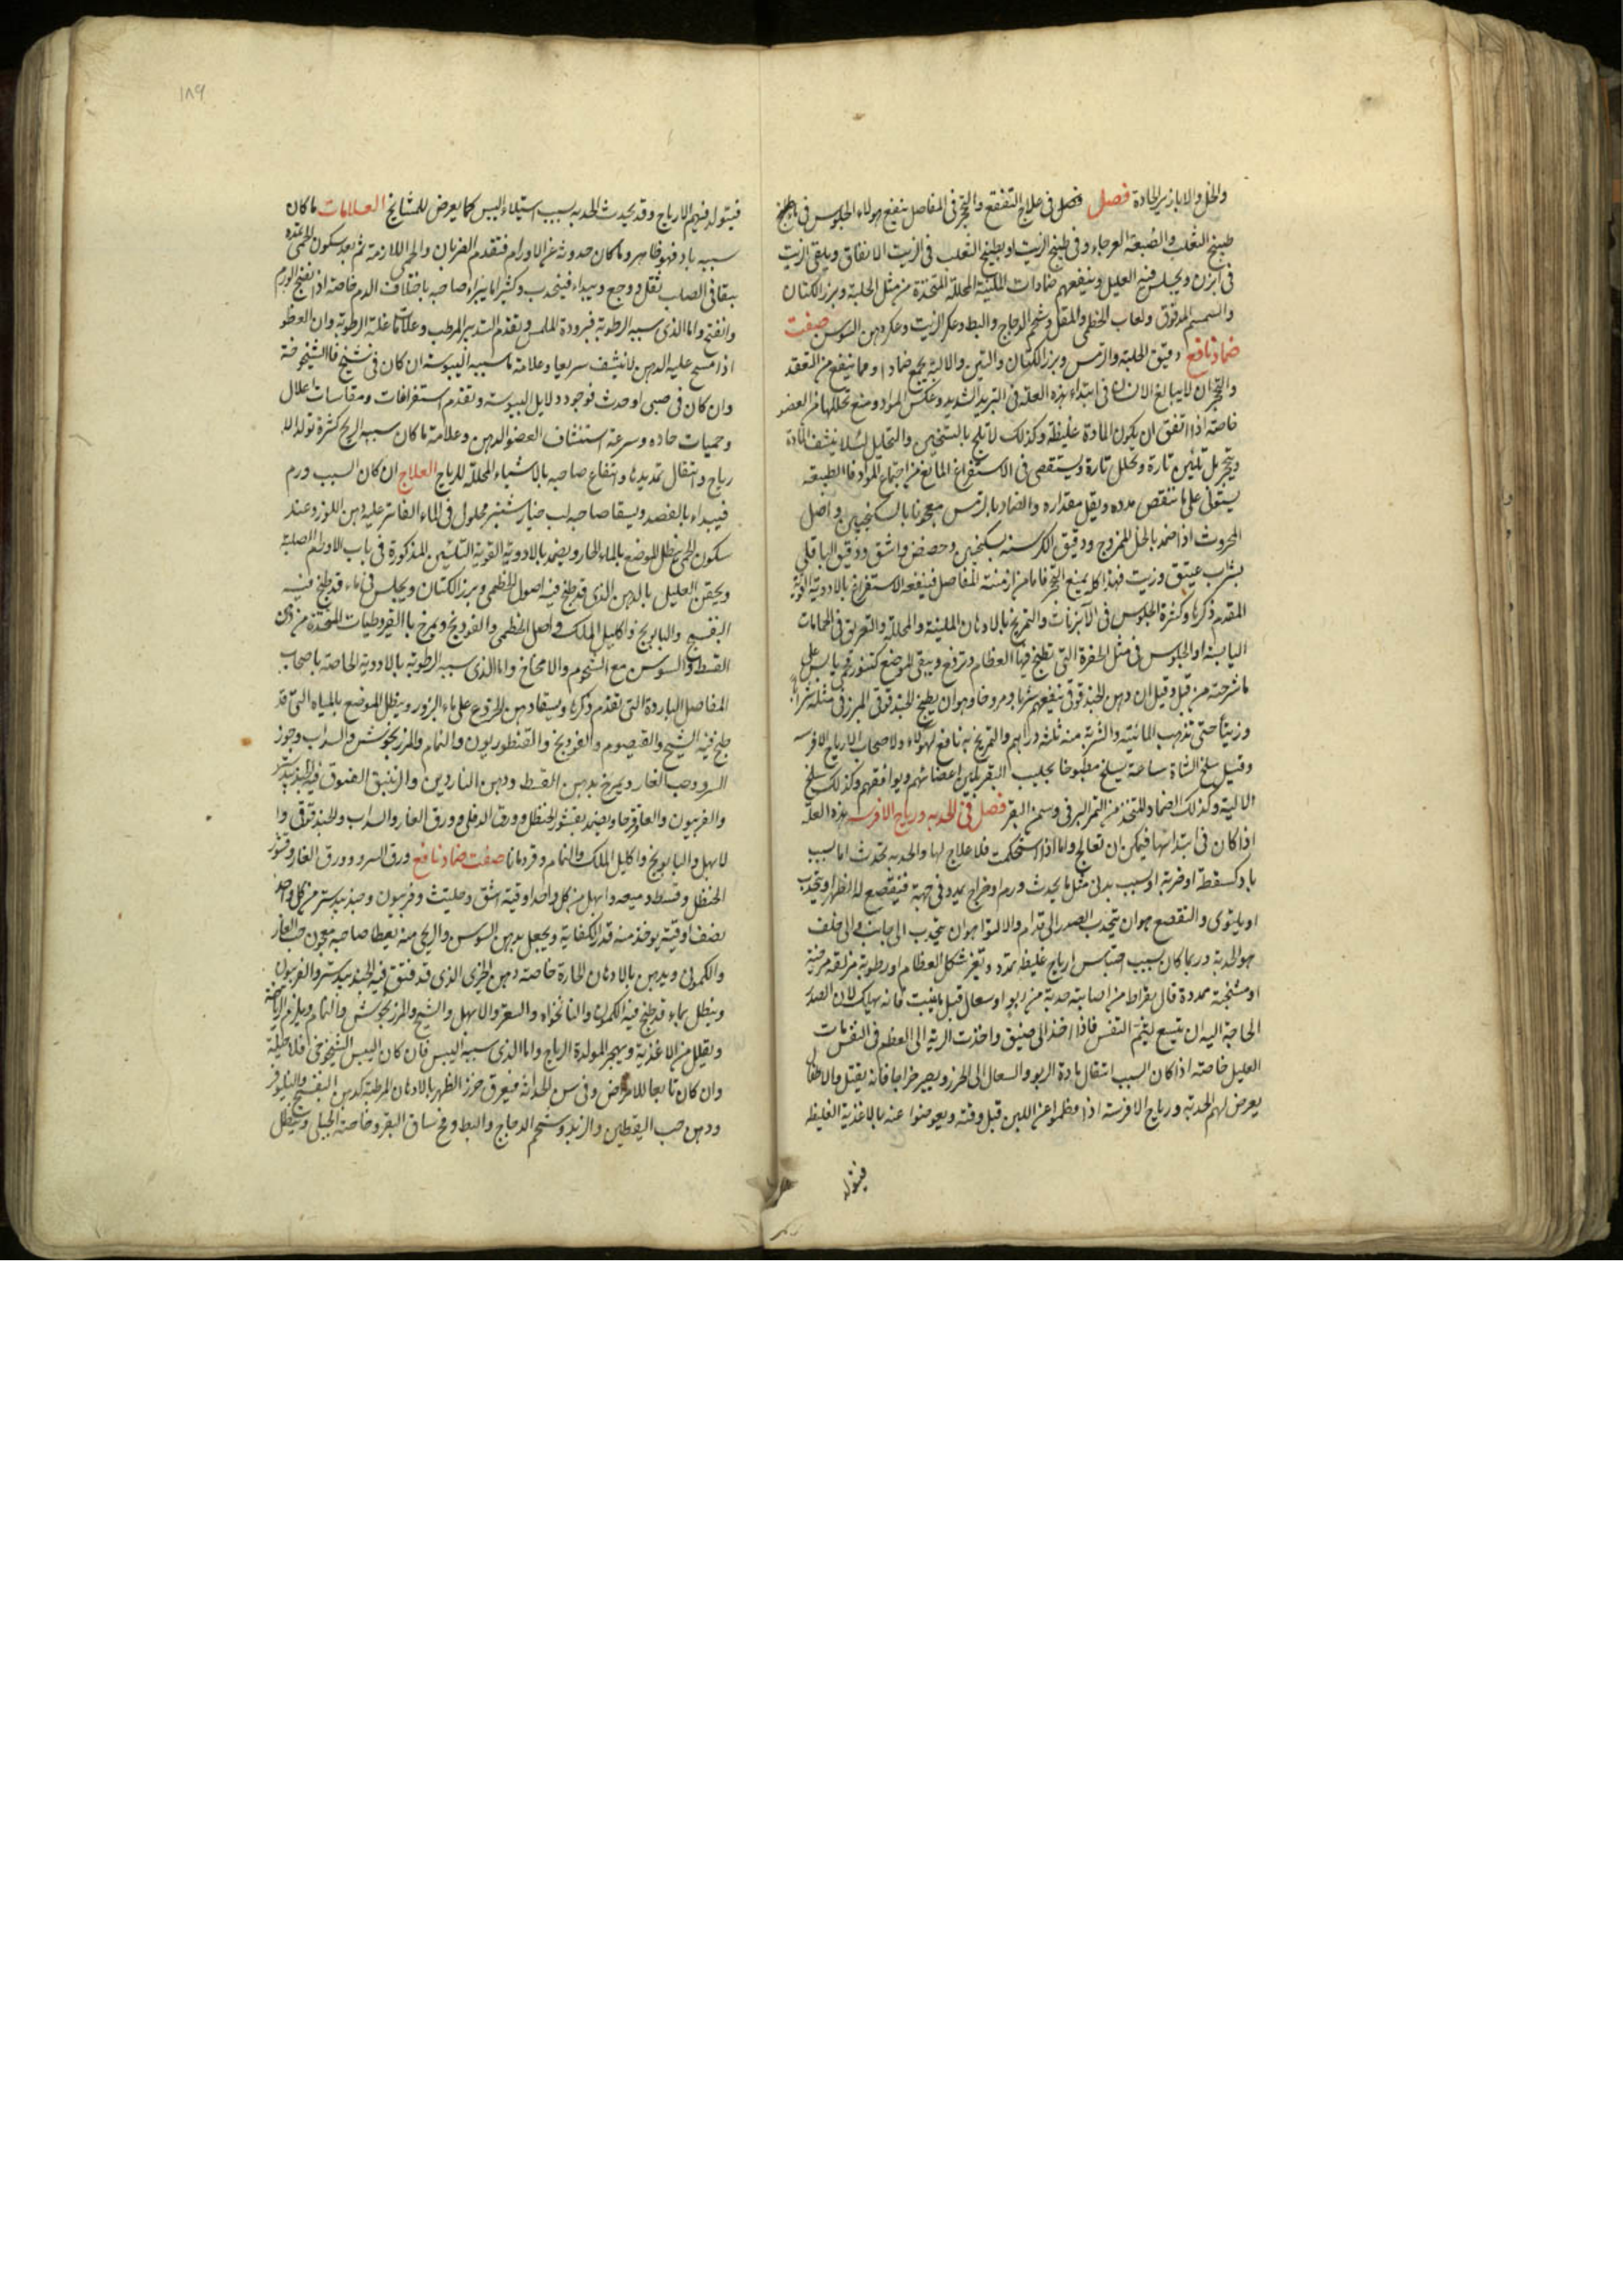 والخل والابازير الحادة فصل فصل فى علاج التفقع والتحجر فى المفاصل ينفع هولاء الجلوس فى
طبيخ الثعلب والضبعة العرجاء وفى طبيخ الزيت او يطبخ الثعلب فى الزيت الانفاق ويلقى الزيت
فى ابزن ويجلس فيه العليل وينفعهم ضمادات الملينة المحللة المتخذة من مثل الحلبة وبزر الكتان
والسمسم المدقوق ولعاب الخطمى والمقل وشحم الدجاج والبط وعكر الزيت وعكر دهن السوسن صفت
ضماد نافع دقيق الحلبة والترمس وبزر الكتان والتين والالية يجمع ضمادا ومما ينفع من التعقد
والتحجر ان لا يبالغ الانسان فى ابتداء هذه العلة فى التبريد الشديد وعكس المواد ومنع تحللها من العضو
خاصة اذا اتفق ان يكون المادة غليظة وكذلك لا تلح بالتسخين والتحليل لئلا ينشف المادة
ويتحجر بل تلين تارة وتحلل تارة ويستقصى فى الاستفراغ المانع من اجتماع المواد فالطبيعة
يستولى على ما ينقص مدده ويقل مقداره والضماد بالترمس معجونا بالسكنجبين واصل
المحروث اذا ضمد بالخل الممزوج ودقيق الكرسنه بسكنجبين وحضض واشق ودقيق الباقلى
بشراب عتيق وزيت فهذا كله يمنع التحجر فاما من ازمنت المفاصل فينفعه الاستفراغ بالادوية القوية
المقدم ذكرها وكثرة الجلوس فى الآبزنات والتمريخ بالادهان الملينة والمحللة والتعريق فى الحمامات
اليابسة او الجلوس فى مثل الحفرة التى تطبخ فيها العظام وترفع ويبقى الموضع كتنور يابس على
ما شرحته من قبل وقيل ان دهن الحندقوقى ينفعهم شربا ومروخا وهو ان يطبخ الحندقوقى المبرز فى مثله شرابا
وزيتا حتى تذهب المائية والشربة منه ثلثة دراهم والتمريخ به نافع لهولاء ولاصحاب الارياح الافرسه
وقيل سلخ الشاة ساعة يسلخ مطبوخا بحليب البقر يلين اعضائهم ويوافقهم وكذلك سلخ
الالية وكذلك الضماد المتخذ من التمر البرنى وسمن البقر فصل فى الحدبه ورياح الافرسه هذه العلة
اذا كان فى ابتدائها فيمكن ان تعالج واما اذا استحكمت فلا علاج لها والحدبه تحدث اما بسبب
باد كسقطة او ضربة او بسبب بدنى مثل ما يحدث ورم او خراج يمدد فى جهة فيتقصع له الظهر او يتحدب
او يلتوى والتقصع هو ان يتجذب الصدر الى قدام والالتوا هو ان يتجذب الى جانب والى خلف
هو الحدبة وربما كان بسبب احتباس ارياح غليظة تمدد وتغير شكل العظام او رطوبة مزلقة مرخية
او مشنجة ممددة قال بقراط من اصابته حدبة من ربو او سعال قبل ما ينبت فانه يهلك لان الصدر
الحاجة اليه ان يتسع ليتم النفس فاذا اخذ الى ضيق واخذت الرية الى العظم فى النفس مات
العليل خاصة اذا كان السبب انتقال مادة الربو والسعال الى الخرز ويصير خراجا فانه يقتل والاطفال
يعرض لهم الحدبة ورياح الافرسة اذا فطموا عن اللبن قبل وقته ويعوضوا عنه بالاغذية الغليظة
فيتولد
١٨٩
فيتولد فيهم الارياح وقد يحدث الحدبه بسبب استيلاء اليبس كما يعرض للمشايخ العلامات ما كان
سببه باد فهو ظاهر وما كان حدوثه عن الاورام فتقدم الضربان والحمى اللازمة ثم بعد سكون الحمى
يبقا فى الصلب ثقل ووجع ويبداء فيتحدب وكثيرا ما يبراء صاحبه باختلاف الدم خاصة اذا نضج الورم
وانفتح واما الذى سببه الرطوبة فبرودة الملمس وتقدم التدبير المرطب وعلامة غلبة الرطوبة وان العظو
اذا مسح عليه الدهن لا ينشف سريعا وعلامة ما سببه اليبوسة ان كان فى شيخ فالشيخوخة
وان كان فى صبى او حدث فوجود دلايل اليبوسة وتقدم استفراغات ومقاسات اعلال
وحميات حاده وسرعة استنشاف العضو الدهن وعلامة ما كان سببه الريح كثرة تولد الا
رياح وانتقال تمديدها وانتفاع صاحبه بالاشياء المحللة للرياح العلاج ان كان السبب ورم
فيبداء بالفصد ويسقا صاحبه لب خيارشنبر محلول فى الماء الفاتر عليه دهن اللوز وعند
سكون الحمى ينطل الموضع بالماء الحار ويضمد بالادوية القوية التليين المذكورة فى باب الاورام الصلبة
ويحقن العليل بالدهن الذى قد طبخ فيه اصول الخطمى وبزر الكتان ويجلس فى ماء قد طبخ فيه
البنفسج والبابونج واكليل الملك واصل الخطمى والفودنج ويمرخ بالقيروطيات المتخذة من دهن
القسط والسوسن مع الشحوم والامخاخ واما الذى سببه الرطوبة بالادوية الخاصة باصحاب
المفاصل الباردة التى تقدم ذكرها ويسقا دهن الخروع على ماء البزور وينطل الموضع بالمياه التى قد
طبخ فيه الشيح والقيصوم والفودنج والقنطوريون والنمام والمرزنجوش والسداب وجوز
السرو وحب الغار ويمرخ بدهن القسط ودهن الناردين والزنبق المفتوق فيه الجندبيدستر
والفربيون والعاقرقرحا ويضمد بقشور الحنظل وورق الدفلى وورق الغار والسداب والحندقوقى وا
لابهل والبابونج واكليل الملك والنمام وقردمانا صفت ضماد نافع ورق السرو وورق الغار وقشور
الحنظل وقسط وميعه وابهل من كل واحد اوقية اشق وحلتيت وفربيون وجندبيدستر من كل واحد
نصف اوقية يوخذ منه قدر الكفاية ويجعل بدهن السوسن والريحى منه يعطا صاحبه معجون حب الغار
والكمونى ويدهن بالادهان الحارة خاصة دهن الخيرى الذى قد فتق فيه الجندبيدستر والفربيون
وينطل بماء قد طبخ فيه الكمون والنانخواه والسعتر والابهل والشيح والمرزنجوش والنمام ويلزم الرياضة
ويقلل من الاغذية ويهجر المولدة الرياح واما الذى سببه اليبس فان كان اليبس الشيخوخى فلا حيلة
وان كان تابعا للامراض وفى سن الحداثة فيعرق خرز الظهر بالادهان المرطبة كدهن البنفسج والنيلوفر
ودهن حب اليقطين والزبد وشحم الدجاج والبط ومخ ساق البقر وخاصة الجبلى وينطل